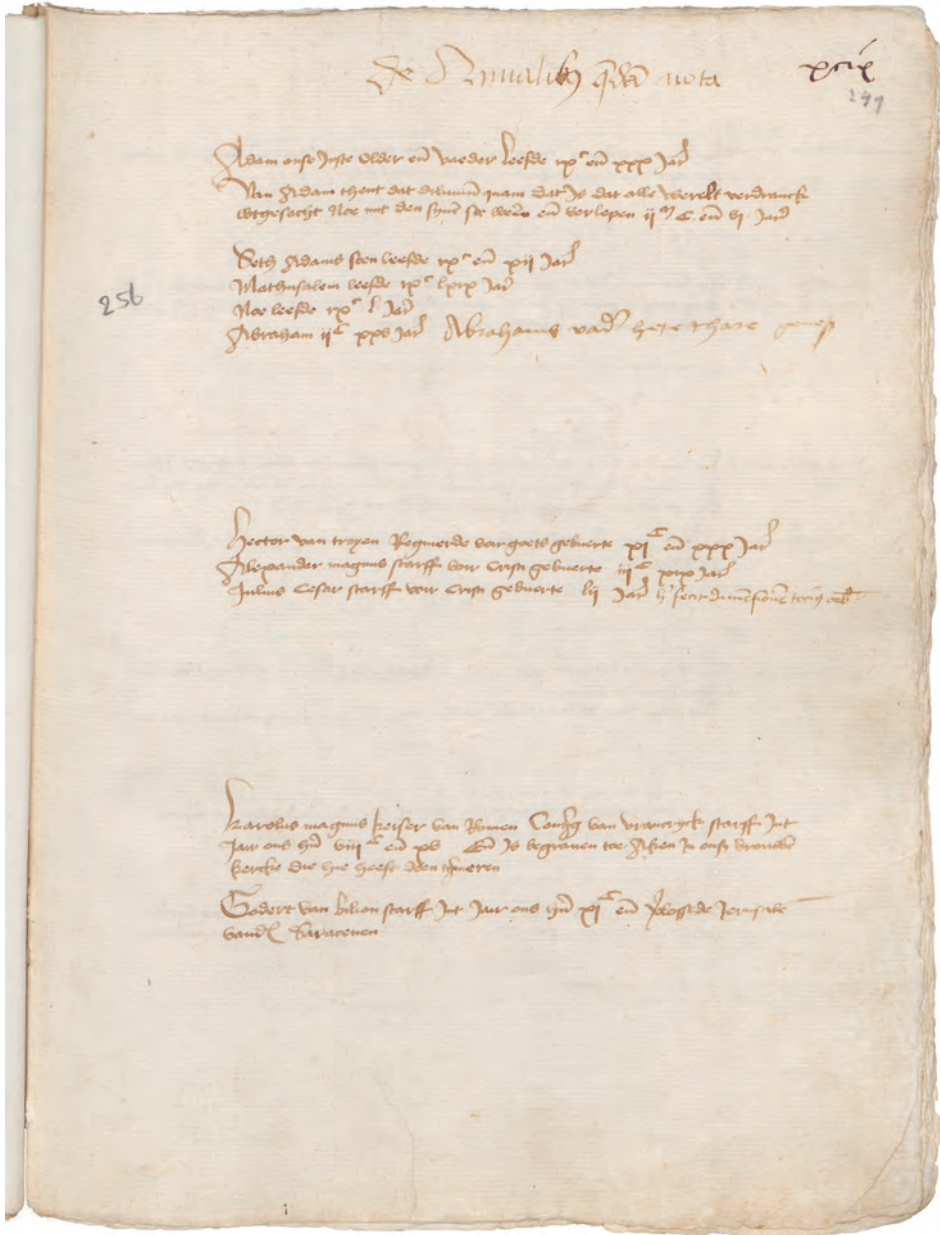 De Annalibus quedam nota
xcix
249
Adam onse Jrste Older eñ vaeder leefde ixᶜ eñ xxx Jar
Van Adam thent dat diluuiũ quam dat Js dat alle werelt verdranck
wtgesacht Noe mit den synẽ eñ verlepen ii C eñ vi Jar
Seth Adams soen leefde ixᶜ eñ xij Jar
256
Mathusalem leefde ixᶜ lxix Jar
Noe leefde ixᶜ l Jar
Abraham jᶜ xxv Jar Abrahams vad hete Thare
Hector van troyen Regnierde vor goets gebuerte xjᶜ eñ xxx Jar
Alexander magnus starff voir Cristi gebuerte iijᶜ xxx Jar
Julius Cesar starff voir Cristi gebuerte lij Jar h fecit dimẽsionẽ orb
Karolus magnus keiser van Romen Coning van vrancryck starff Jnt
Jaer ons hñ viijᶜ eñ xv Eñ Js begrauen toe Aken Jn onser vrouwẽ
kercke die hie heeft doen tymeren
Godert van bilion starff Jnt Jaer ons hñ xjᶜ eñ verlossede Jerusalẽ
vand Saracenen